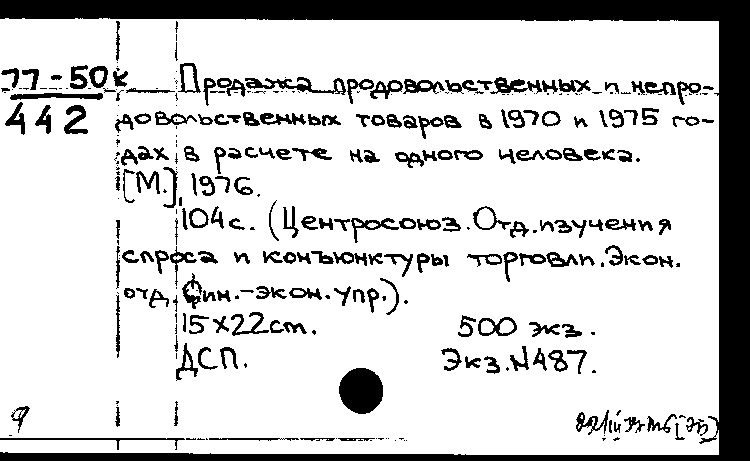 77-50к
442
Продажа продовольственных и непро-
довольственных товаров в 1970 и 1975 го-
дах в расчете на одного человека.
[М.], 1976.
104 с. (Центросоюз. Отд. изучения
спроса и конъюнктуры торговли. Экон.
отд. Фин.-экон. упр.).
15x22cm. 500 экз.
ДСП. Экз. N487.